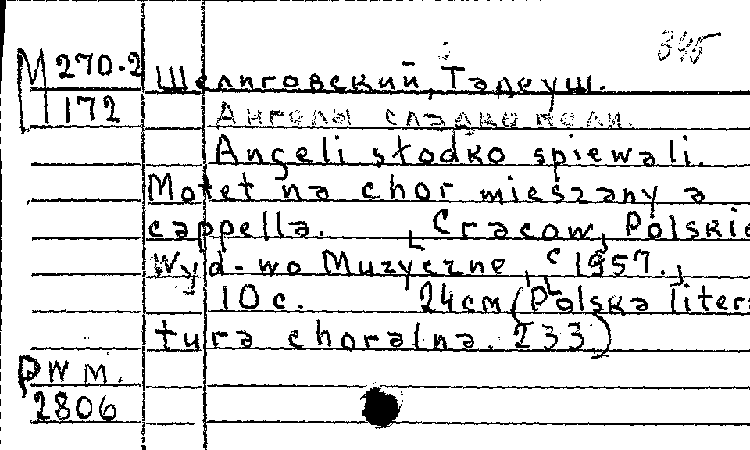 345
М 270.2 Шелиговский, Тадеуш.
172 Ангелы сладко пели.
Angeli słodko spiewali.
Motet na chor mieszany a
cappella. [Cracow,] Polskie
Wyd-wo Muzyczne, [c 1957.]
10 с. 24 см (Polska litera
tura choralna. 233)
PWM.
2806